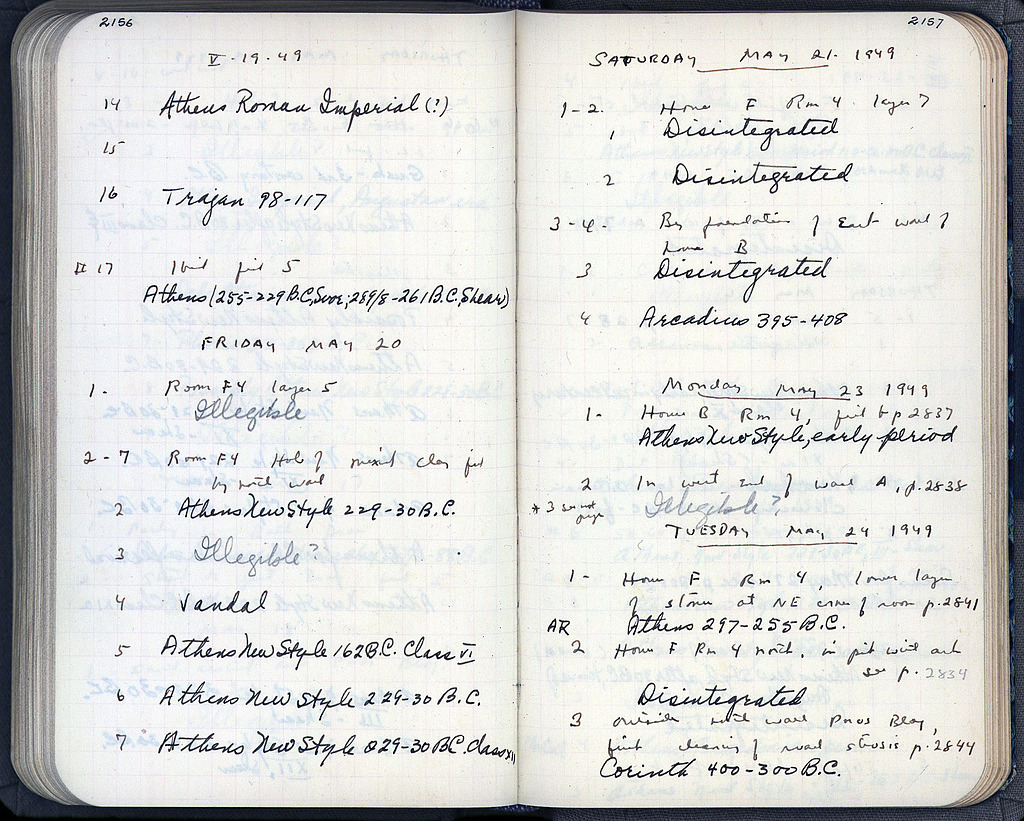 2156
V-19-49
14 Athens Roman Imperial (?)
15
16 Trajan 98-117
II 17 pit 5
Athens (255-229 B.C., Svor; 289/8-261 B.C., Shear)
FRIDAY MAY 20
1- Room F4 layer 5
Illegible
2-7 Room F4 Hole of mixed clay
by north wall
2 Athens New Style 229-30 B.C.
3 Illegible?
4 Vandal
5 Athens New Style 162 B.C. Class VI
6 Athens New Style 229-30 B.C.
7 Athens New Style 229-30 B.C. Class XII
2157
SATURDAY MAY 21. 1949
1-2. House F Rm 4. layer 7
1 Disintegrated
2 Disintegrated
3-4. By foundation of East wall of
House B
3 Disintegrated
4 Arcadius 395-408
Monday May 23 1949
1- House B Rm 4, p 2837
Athens New Style, early period
2 In west end of wall A, p. 2838
* 3 see next page
Illegible?
TUESDAY MAY 24 1949
1- House F Rm 4 lower layer
of stones at NE corner of room p. 2841
AR Athens 297-255 B.C.
2 House F Rm 4 north, in pit
see p. 2834
Disintegrated
3 outside north wall Pnos Bldg,
first cleaning of road p. 2844
Corinth 400-300 B.C.